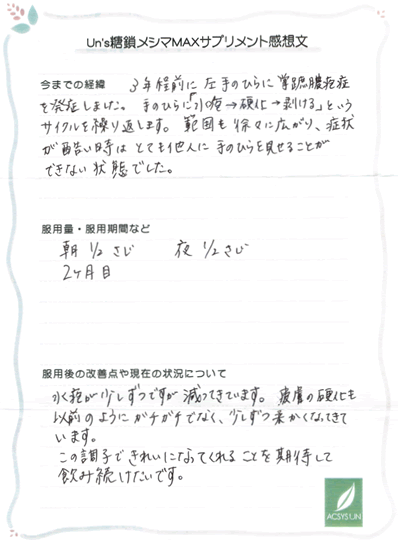 Un's糖鎖メシマMAXサプリメント感想文
今までの経緯 3年程前に左手のひらに掌蹠膿疱症
を発症しました。手のひらに「水疱→硬化→剥ける」という
サイクルを繰り返します。範囲も徐々に広がり、症状
が酷い時はとても他人に手のひらを見せることが
できない状態でした。
服用量・服用期間など
朝 1/2 さじ 夜 1/2 さじ
2ヶ月目
服用後の改善点や現在の状況について
水疱が少しずつですが減ってきています。皮膚の硬化も
以前のようにガチガチでなく、少しずつ柔かくなってきて
います。
この調子できれいになってくれることを期待して
飲み続けたいです。
ACSYSUN